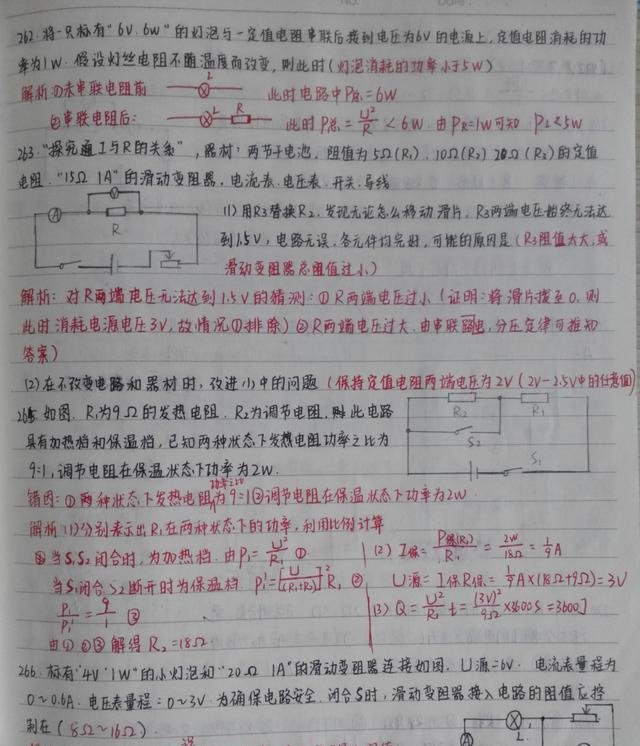 262. 将一只标有"6V.6W"的灯泡与一定值电阻串联后接到电压为6V的电源上,定值电阻消耗的功
率为1W. 假设灯丝电阻不随温度而改变,则此时(灯泡消耗的功率小于5W)
解析:①未串联电阻前 L 此时电路中P总=6W
②串联电阻后: L R 此时P总=U²/R<6W.由PR=1W可知 PL<5W
263."探究I与R的关系",器材:两节干电池,阻值为5Ω(R₁).10Ω(R₂) 20Ω(R₃)的定值
电阻."15Ω 1A"的滑动变阻器,电流表.电压表.开关.导线
A V R
(1)用R₃替换R₂,发现无论怎么移动滑片,R₃两端电压始终无法达
到1.5V,电路无误.各元件均完好,可能的原因是(R₃阻值太大,或
滑动变阻器总阻值过小)
解析:对R两端电压无法达到1.5V的猜测:①R两端电压过小(证明:将滑片拨至0.则
此时消耗电源电压3V,故情况①排除)②R两端电压过大.由串联电路,分压定律可推知
答案)
(2)在不改变电路和器材时,改进(1)中的问题(保持定值电阻两端电压为2V(2V-2.5V中的任意值)
如图.R₁为9Ω的发热电阻.R₂为调节电阻,此电路
具有加热档和保温档,已知两种状态下发热电阻功率之比为
9:1,调节电阻在保温状态下功率为2W.
R₂ R₁ S₂ S₁
错因:①两种状态下发热电阻功率之比为9:1②调节电阻在保温状态下功率为2W
解析(1)分别表示出R₁在两种状态下的功率,利用比例计算
当S₁S₂闭合时,为加热档.由P₁=U²/R₁ ①
当S₁闭合S₂断开时为保温档 P₁'=[U/(R₁+R₂)]²R₁ ②
P₁/P₁'=9/1 ③
由①②③解得R₂=18Ω
(2) I保= =2W/18Ω=1/9A
U源=I保R保=1/9A×(18Ω+9Ω)=3V
(3) Q=U²/R₁t=(3V)²/9Ω×3600S=3600J
266.标有"4V 1W"的小灯泡和"20Ω 1A"的滑动变阻器连接如图.U源=6V.电流表量程为
0~0.6A.电压表量程:0~3V.为确保电路安全.闭合S时,滑动变阻器接入电路的阻值应控
制在(8Ω~16Ω).
L